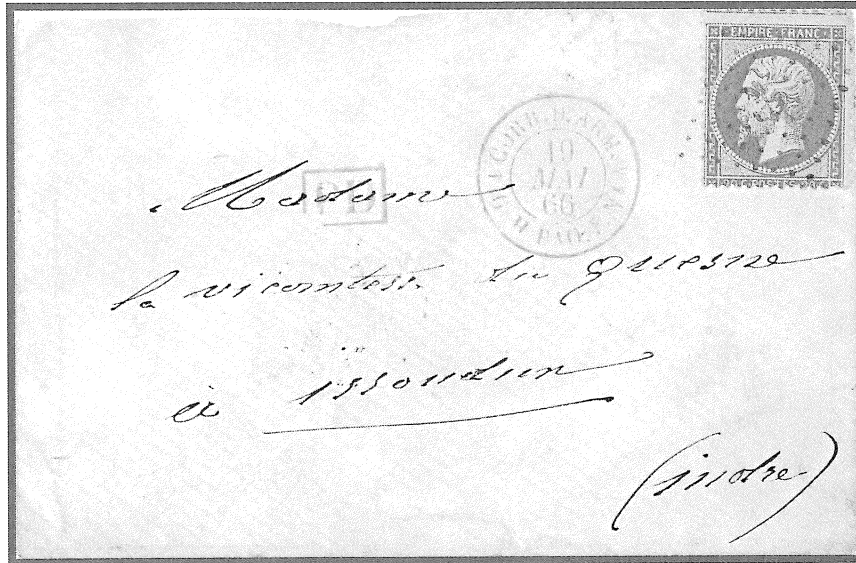 EMPIRE FRANC.
CORR. D. ARM.
19
MAI
66
PD
Madame
la vicomtesse du quesne
à issoudun
(indre)